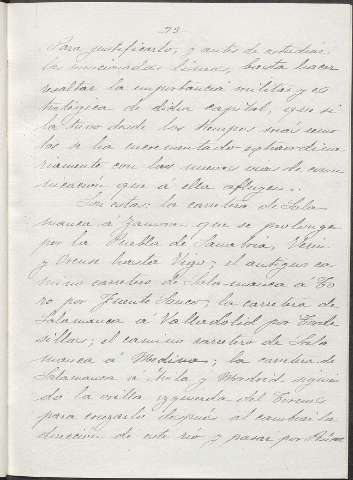 73
Para justificarlo, y antes de estudiar
las mencionadas líneas, basta hacer
resaltar la importancia militar y es
tratégica de dicha capital, que si
la tuvo desde los tiempos mas remo
tos se ha incrementado extraordina
riamente con las nuevas vias de comu
nicación que á ella afluyen..
Son estas: la carretera de Sala
manca á Zamora que se prolonga
por la Puebla de Sanabria, Verin
y Orense hasta Vigo; el antiguo ca
mino carretero de Salamanca á To
ro por Fuente Sauco; la carretera de
Salamanca á Valladolid por Torde
sillas; el camino carretero de Sala
manca á Medina; la carretera de
Salamanca á Avila y Madrid siguien
do la orilla izquierda del Tormes
para cruzarlo después al cambiar la
dirección de este rio, y pasar por